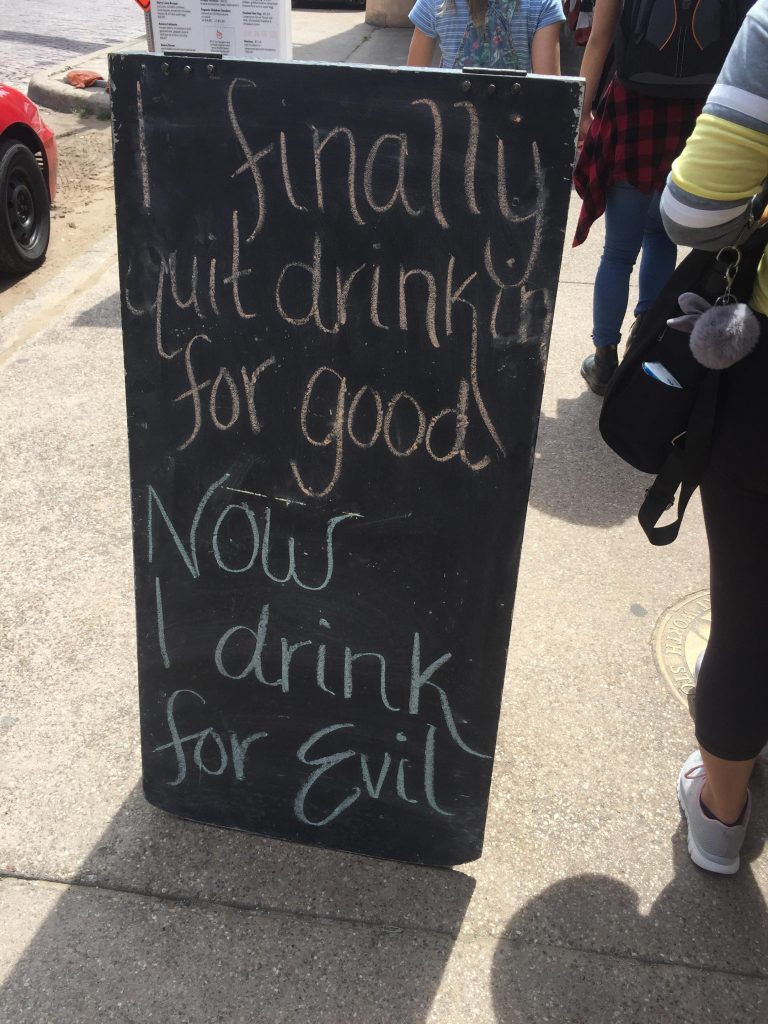 I finally
quit drinkin
for good
Now
I drink
for Evil